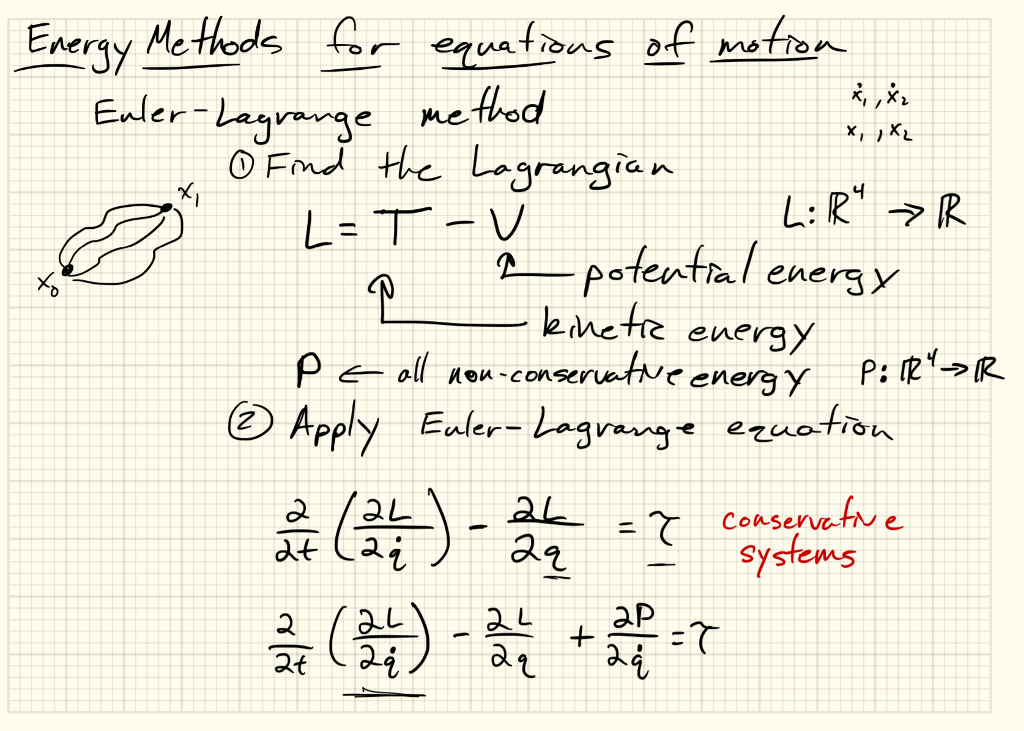 Energy Methods for equations of motion
Euler-Lagrange method
ẋ₁, ẋ₂
x₁, x₂
① Find the Lagrangian
x₁
x₀
L = T - V
L: ℝ⁴ → ℝ
potential energy
kinetic energy
P ← all non-conservative energy
P: ℝ⁴ → ℝ
② Apply Euler-Lagrange equation
∂/∂t (∂L/∂q̇) - ∂L/∂q = τ
conservative
systems
∂/∂t (∂L/∂q̇) - ∂L/∂q + ∂P/∂q̇ = τ